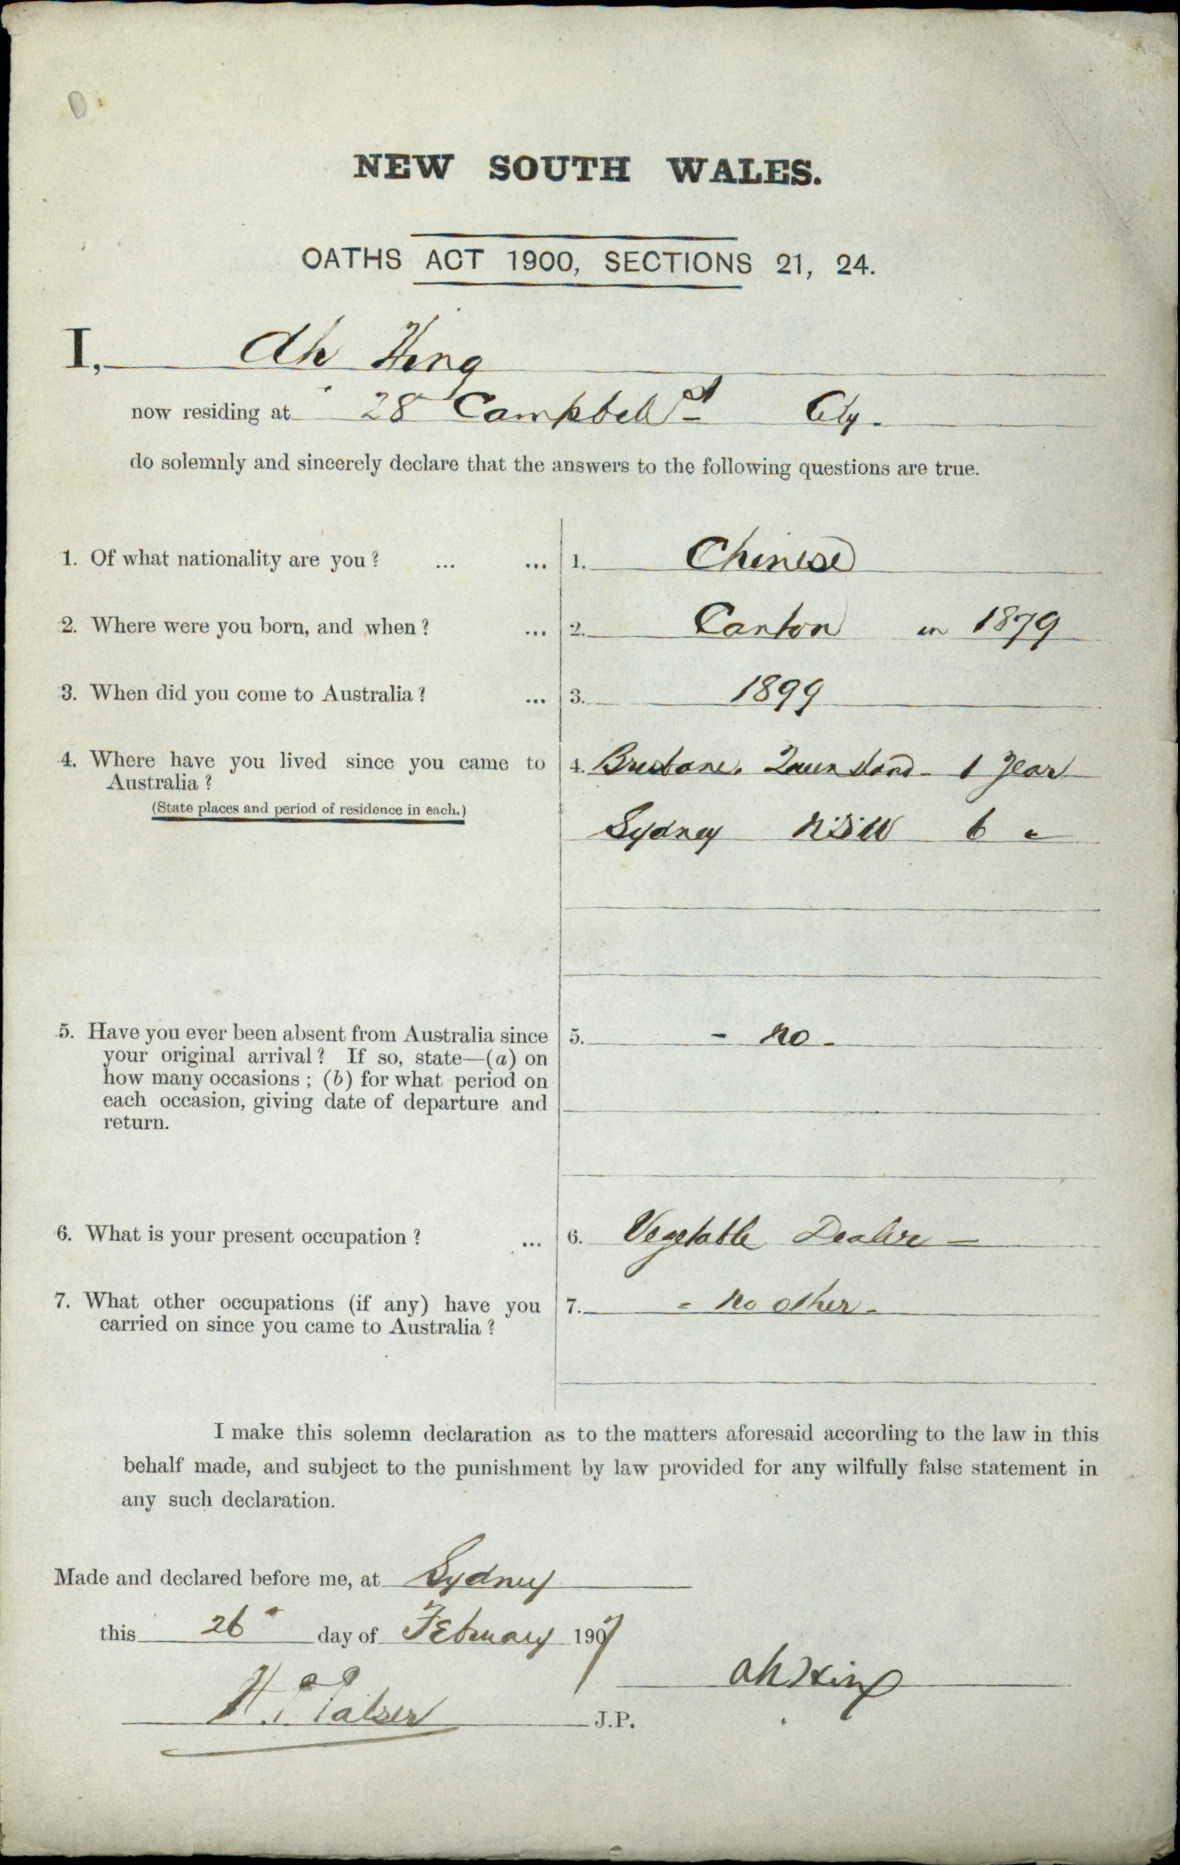 NEW SOUTH WALES.
OATHS ACT 1900, SECTIONS 21, 24.
I, Ah Hing
now residing at 28 Campbell St City.
do solemnly and sincerely declare that the answers to the following questions are true.
1. Of what nationality are you? ... ... 1. Chinese
2. Where were you born, and when? ... 2. Canton in 1879
3. When did you come to Australia? ... 3. 1899
4. Where have you lived since you came to 4. Brisbane. Queensland - 1 Year
Australia?
(State places and period of residence in each.)
Sydney NSW 6 "
5. Have you ever been absent from Australia since 5. - no -
your original arrival? If so, state—(a) on
how many occasions; (b) for what period on
each occasion, giving date of departure and
return.
6. What is your present occupation? ... 6. Vegetable Dealer -
7. What other occupations (if any) have you 7. - no other -
carried on since you came to Australia?
I make this solemn declaration as to the matters aforesaid according to the law in this
behalf made, and subject to the punishment by law provided for any wilfully false statement in
any such declaration.
Made and declared before me, at Sydney
this 26 day of February 1907
Ah Hing
J.P.